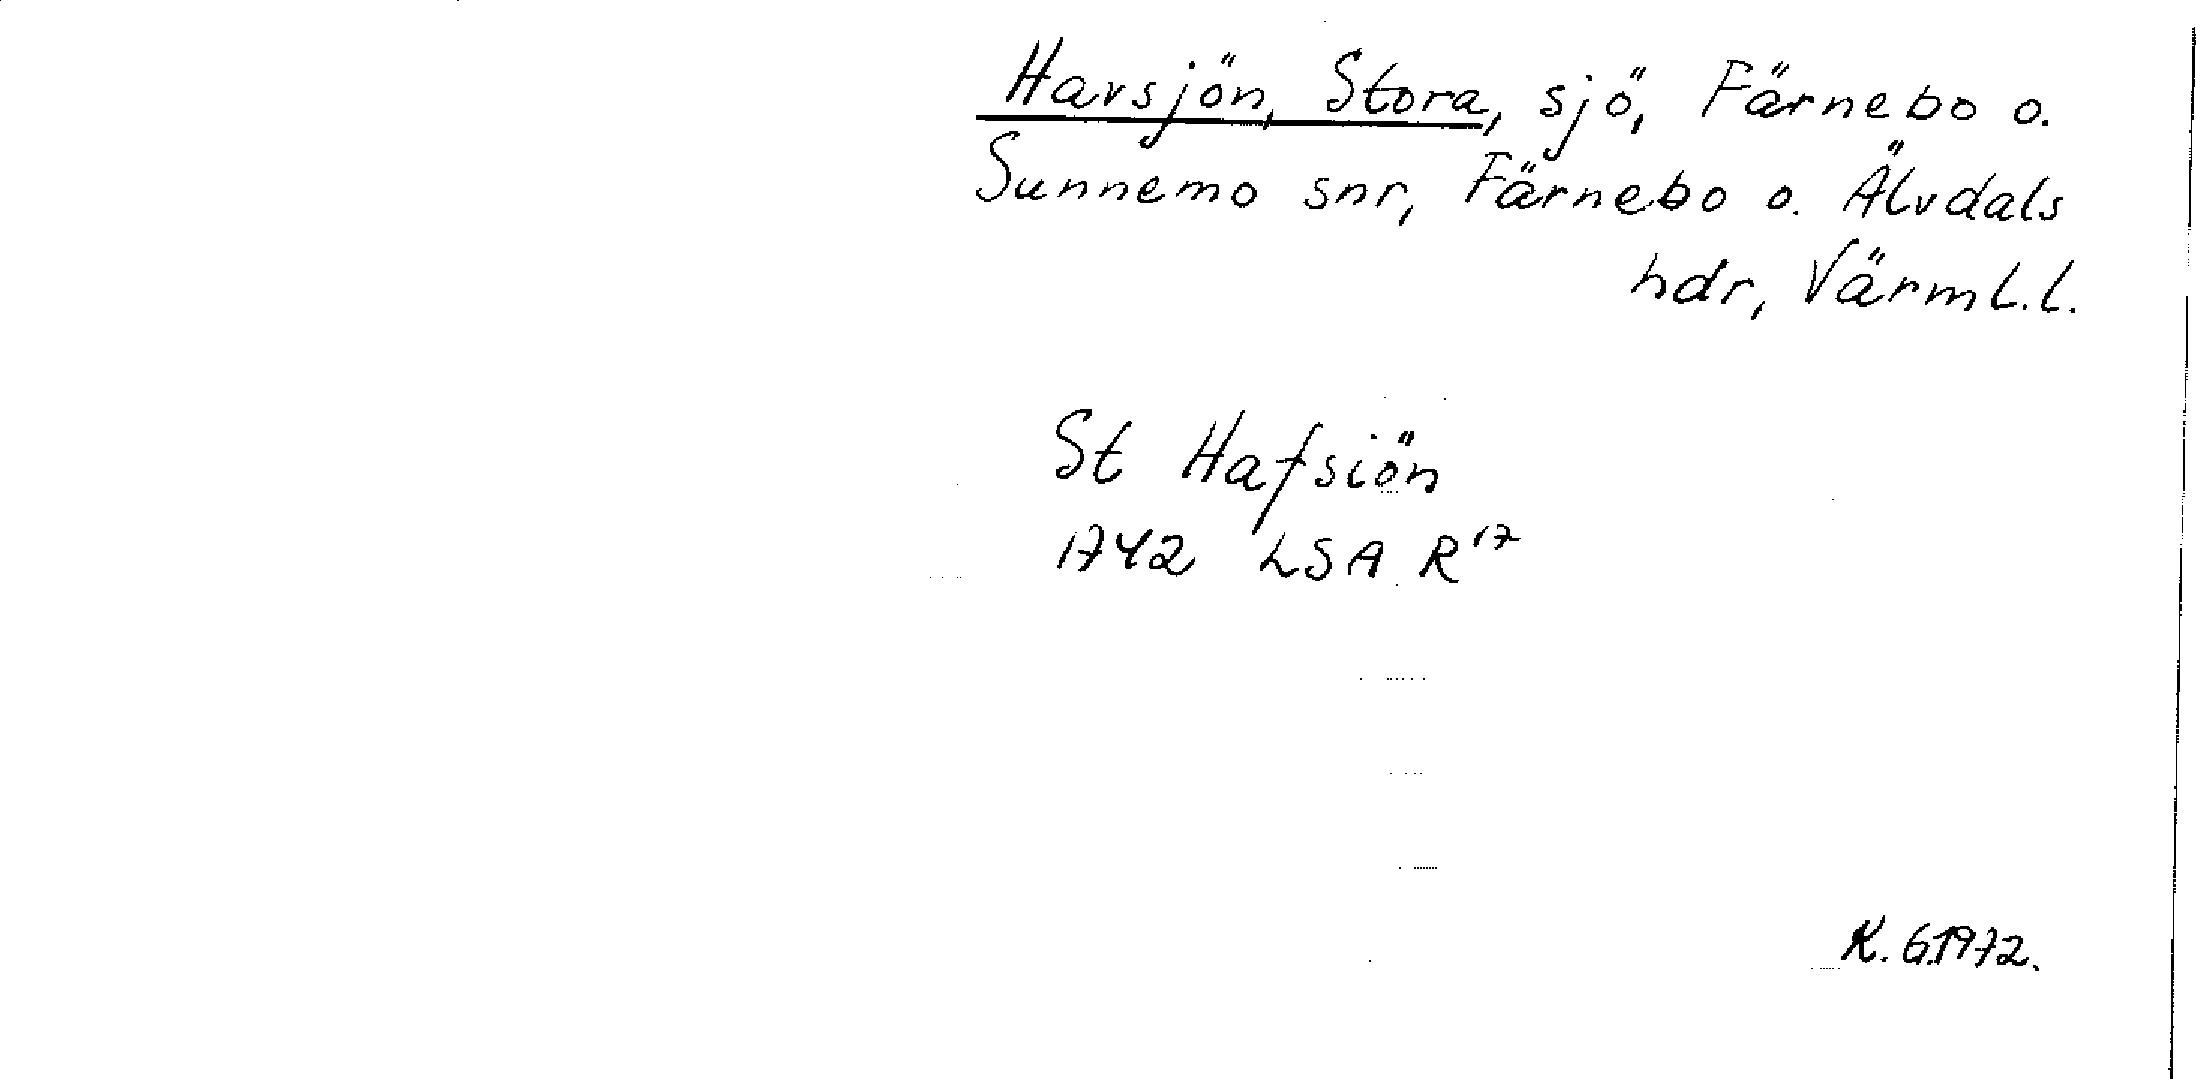 Havsjön, Stora, sjö, Färnebo o.
Sunnemo snr, Färnebo o. Älvdals
hdr, Värml.l.
St Hafsiön
1742 LSA R17
K.G.1972.